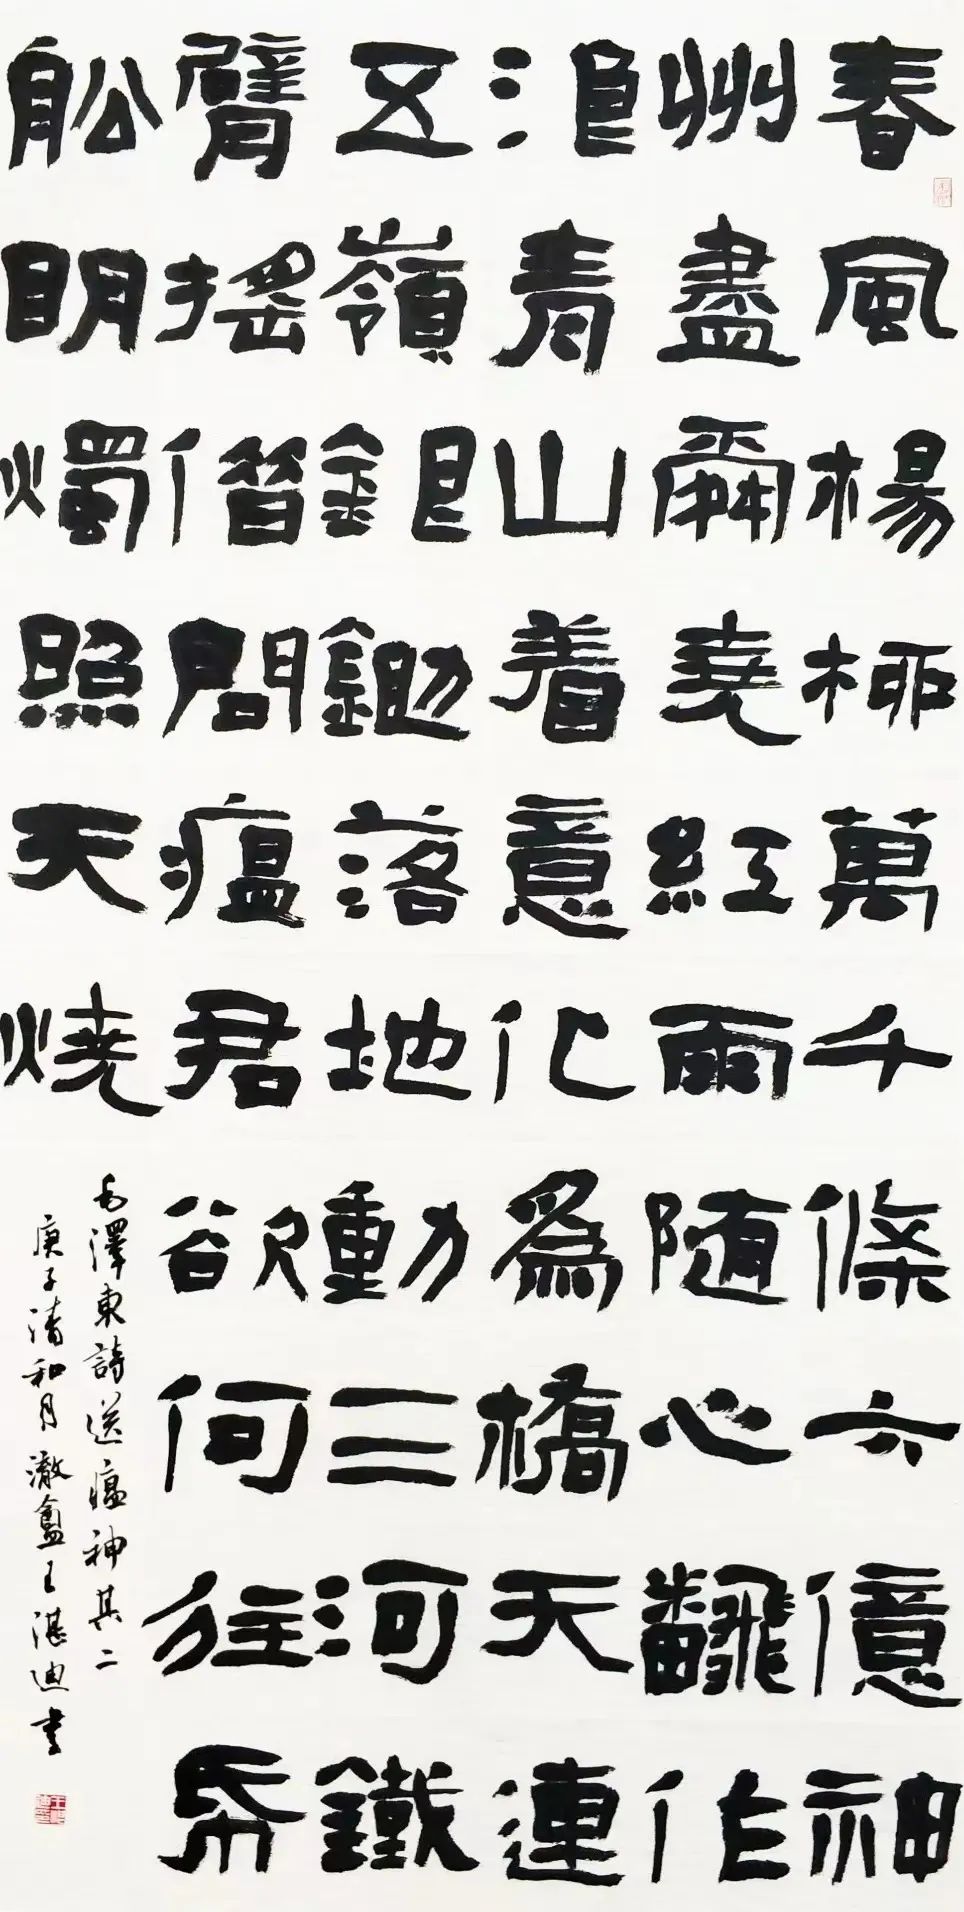 春風楊柳萬千條六億神
州盡舜堯紅雨随心飜作
浪青山着意化為橋天連
五嶺銀鋤落地動三河鐵
臂摇借問瘟君欲何往帋
舩明燭照天燒
毛澤東詩送瘟神其二
庚子清和月澈盦王湛迪書